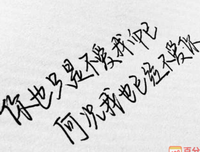 你也只是不爱我而已
何况我也已经不爱你
百分